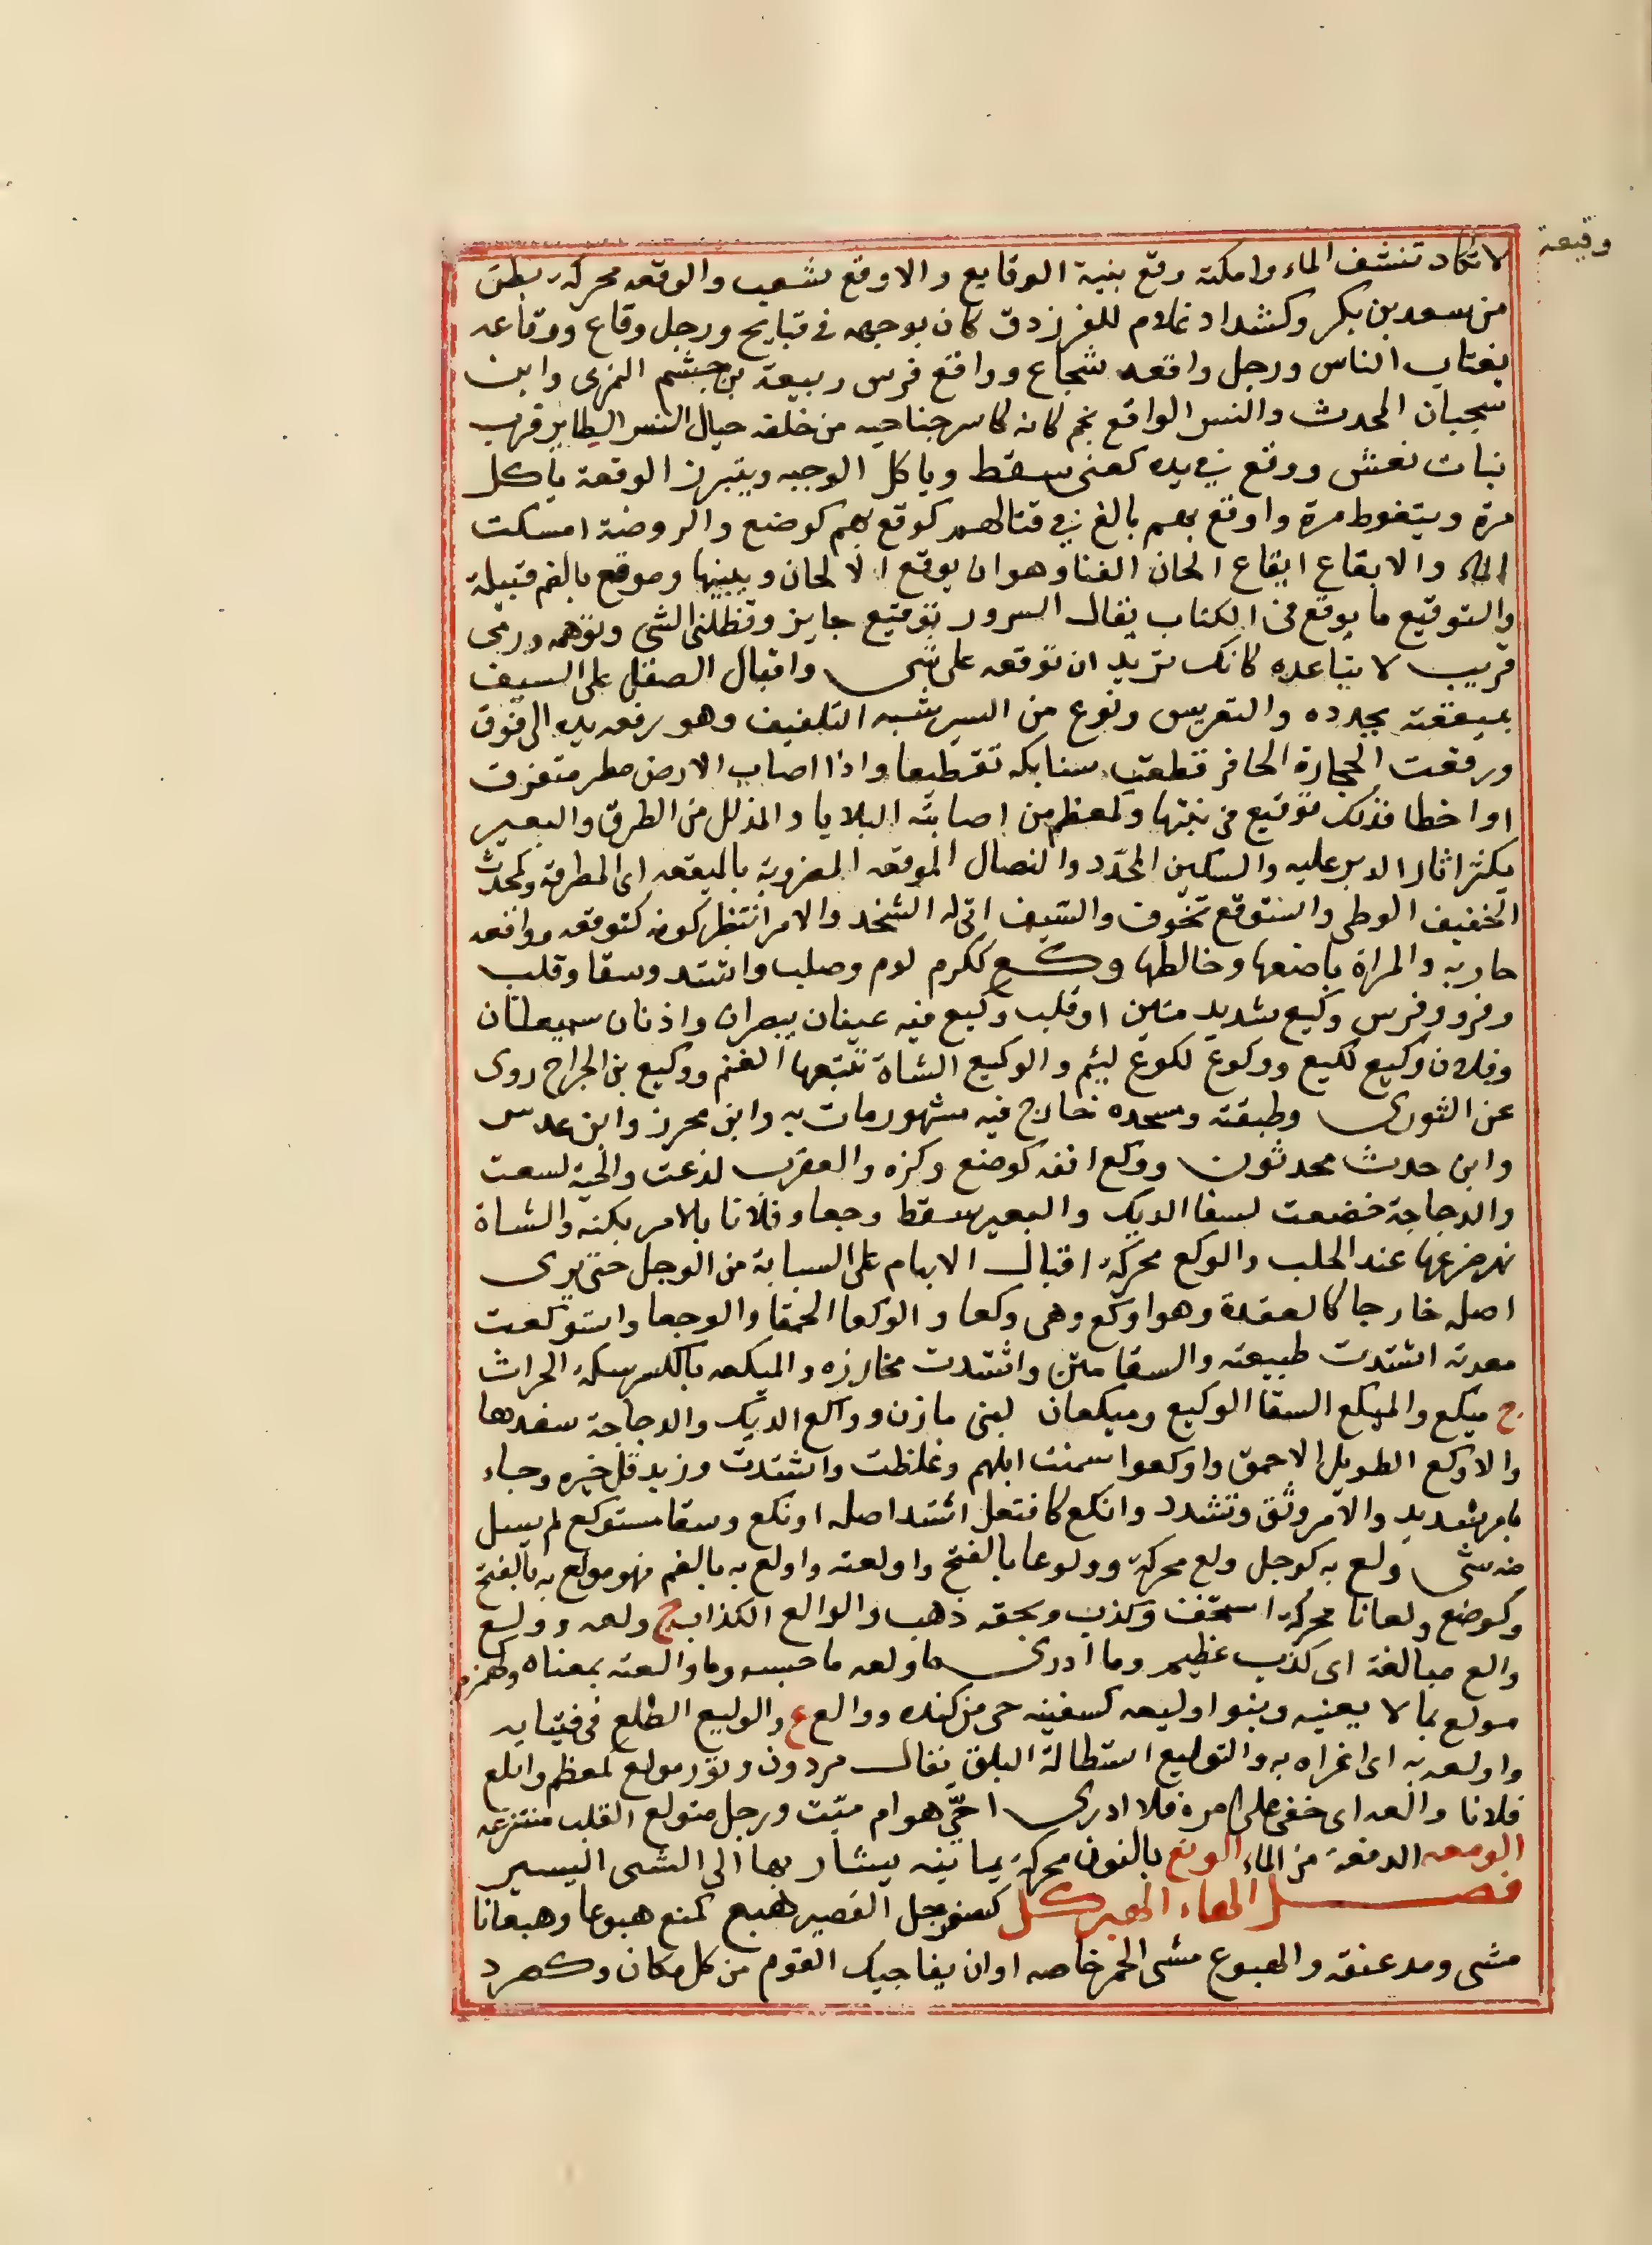 وقيعة
لا تكاد تنشف الماء وامكنة وقع بنية الوقايع والاوقع شعب والوقعه محركة بطن
من سعد بن بكر وكشداد غلام للفرزدق كان يوجهه في قبايح ورجل وقاع ووقاعه
يغتاب الناس ورجل واقعه شجاع وواقع فرس ربيعة بن جشم النمري وابن
سحبان المحدث والنسر الواقع نجم كانه كاسر جناحيه من خلفه حيال النسر الطاير قرب
نبات نعش ووقع في يده كعنى سقط وياكل الوجبه ويتبرز الوقعة ياكل
مرة ويتغوط مرة واوقع بهم بالغ في قتالهم كوقع بهم كوضع والروضة امسكت
الماء والايقاع ايقاع الحان الغنا وهو ان يوقع الالحان ويبينها وموقع بالضم قبيلة
والتوقيع ما يوقع في الكتاب يقال السرور توقيع جايز وتظنى الشى وتوهمه ورمى
قريب لا يتباعده كانك تريد ان توقعه على شى واقبال الصقل على السيف
بميقعته يحدده والتعريس ونوع من السير شبه التلقيف وهو رفعه يده الى فوق
ووقعت الحجارة الحافر قطعت سنابكه تقطيعا واذا اصاب الارض مطر متفرق
اواخطا فذلك توقيع في نبتها وكمعظم من اصابته البلايا والمذلل من الطرق والبعير
يكثر اثار الدبر عليه والسكين المحدد والنصال الموقعه المضروبة بالميقعه اى المطرقة وكمحدث
الخفيف الوطى واستوقع تخوف والسيف انى له الشحذ والامر انتظر كونه كتوقعه وواقعه
حاربه والمراة باضعها وخالطها وكع ككرم لوم وصلب واشتد وسقا وقلب
وفرو وفرس وكيع شديد متين او قلب وكيع فيه عينان يبصران واذنان سميعتان
وفلان وكيع لكيع ووكوع لكوع لييم والوكيع الشاة تتبعها الغنم ووكيع بن الجراح روى
عن الثورى وطبقته ومسجده خارج فيد مشهور مات به وابن محرز وابن عدس
وابن حدث محدثون ووكع انفه كوضع وكزه والعقرب لدغت والحية لسعت
والدجاجة خضعت لسفا الديك والبعير سقط وجعا وفلانا بالامر بكته والشاة
نهز ضرعها عند الحلب والوكع محركة اقبال الابهام على السبابة من الرجل حتى يرى
اصله خارجا كالعقدة وهو اوكع وهى وكعا والوكعا الحمقا والوجعا واستوكعت
معدته اشتدت طبيعته والسقا متن واشتدت مخارزه والميكعه بالكسر سكة الحراث
ج ميكع والميكع السقا الوكيع وميكعان لبنى مازن وواكع الديك والدجاجة سفدها
والاوكع الطويل الاحمق واوكعوا سمنت ابلهم وغلظت واشتدت وزيد قل خيره وجاء
بامر شديد والامر وثق وتشدد واتكع كافتعل اشتد اصله اوتكع وسقا مستوكع لم يسل
منه شى ولع به كوجل ولع محركة وولوعا بالفتح واولعته واولع به بالضم فهو مولع به بالفتح
وكوضع ولعانا محركة استخف وكذب وبحقه ذهب والوالع الكذاب ج ولعه وولع
والع مبالغة اى كذب عظيم وما ادرى ما ولعه ما حبسه وما والعته بمعناه وكهمزه
مولع بما لا يعنيه وبنوا وليعه كسفينه حى من كنده ووالع ع والوليع الطلع فى قيقايه
واولعه به اى اغراه به والتوليع استطالة البلق يقال برذون وثور مولع كمعظم واتلع
فلانا والعه اى خفى على امره فلا ادرى احى هو ام ميت ورجل متولع القلب منتزعه
الومعه الدفعة من الماء الونع بالنون محركة يمانيه يشار بها الى الشى اليسير
فصل الهاء الهبركل كسفرجل القصير هبع كمنع هبوعا وهبعانا
مشى ومد عنقه والهبوع مشى الحمر خاصه او ان يفاجيك القوم من كل مكان وكصرد